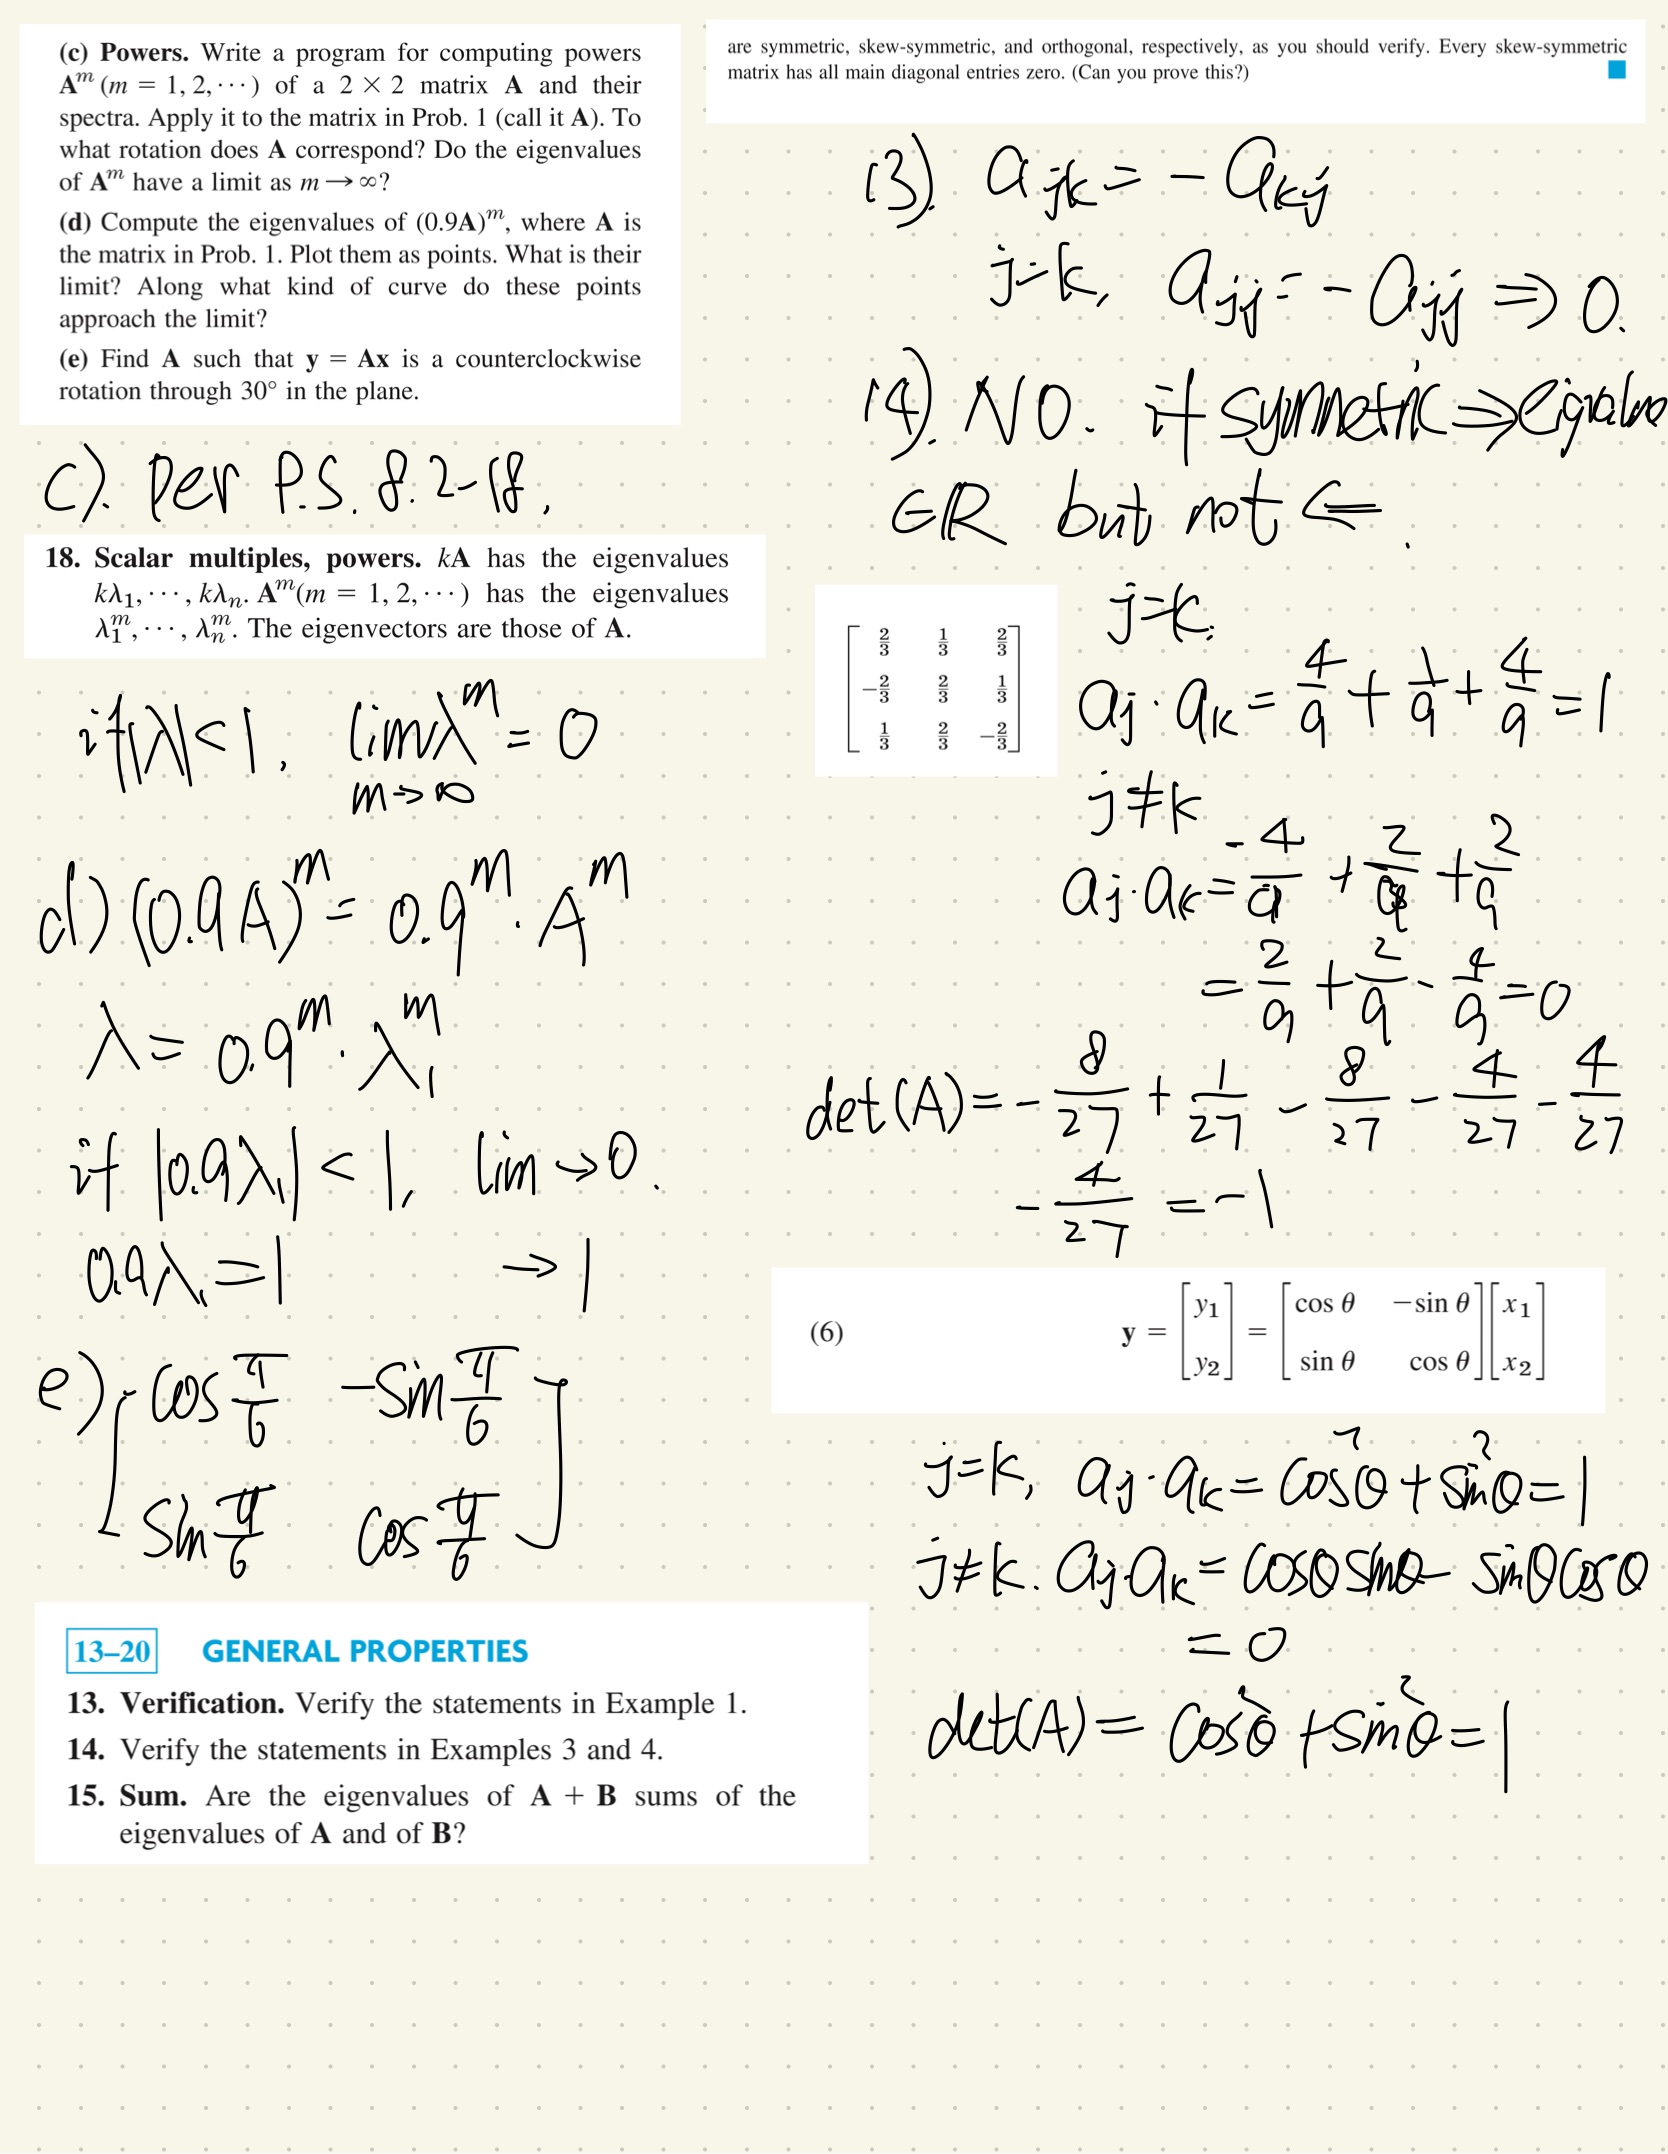 (c) Powers. Write a program for computing powers
Aᵐ (m = 1, 2, ⋯) of a 2 × 2 matrix A and their
spectra. Apply it to the matrix in Prob. 1 (call it A). To
what rotation does A correspond? Do the eigenvalues
of Aᵐ have a limit as m → ∞?
(d) Compute the eigenvalues of (0.9A)ᵐ, where A is
the matrix in Prob. 1. Plot them as points. What is their
limit? Along what kind of curve do these points
approach the limit?
(e) Find A such that y = Ax is a counterclockwise
rotation through 30° in the plane.
c). Per P.S. 8.2-18,
18. Scalar multiples, powers. kA has the eigenvalues
kλ₁, ⋯, kλₙ. Aᵐ(m = 1, 2, ⋯) has the eigenvalues
λ₁ᵐ, ⋯, λₙᵐ. The eigenvectors are those of A.
if |λ| < 1, lim λᵐ = 0
m→∞
d) (0.9A)ᵐ = 0.9ᵐ · Aᵐ
λ = 0.9ᵐ · λ₁ᵐ
if |0.9λ₁| < 1, lim → 0.
0.9λ₁ = 1 → 1
e) [ cos π/6 -sin π/6
sin π/6 cos π/6 ]
13–20 GENERAL PROPERTIES
13. Verification. Verify the statements in Example 1.
14. Verify the statements in Examples 3 and 4.
15. Sum. Are the eigenvalues of A + B sums of the
eigenvalues of A and of B?
are symmetric, skew-symmetric, and orthogonal, respectively, as you should verify. Every skew-symmetric
matrix has all main diagonal entries zero. (Can you prove this?)
13). a_jk = - a_kj
j=k, a_jj = - a_jj ⇒ 0.
14). NO. if symmetric ⇒ eigvalue
∈ℝ but not ⇐.
2/3 1/3 2/3
-2/3 2/3 1/3
1/3 2/3 -2/3
j=k,
aj · ak = 4/9 + 1/9 + 4/9 = 1
j≠k
aj · ak = -4/9 + 2/9 + 2/9
= 2/9 + 2/9 - 4/9 = 0
det(A) = - 8/27 + 1/27 - 8/27 - 4/27 - 4/27
- 4/27 = -1
(6) y = [y₁ y₂] = [cos θ −sin θ sin θ cos θ] [x₁ x₂]
j=k, aj · ak = cos²θ + sin²θ = 1
j≠k. aj · ak = cosθ sinθ - sinθ cosθ
= 0
det(A) = cos²θ + sin²θ = 1